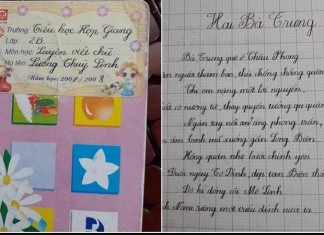 Trường: Tiểu học Hợp Giang
Lớp: 2B.
Môn học: Luyện viết chữ
Họ tên: Lương Thuỳ Linh
Năm học: 2007 / 2008
Hai Bà Trưng
Bà Trưng quê ở Châu Phong
người tham bạo, thù chồng chẳng quên
Chị em nặng một lời nguyền
nương tử thay quyền tướng quân
Ngàn tây nổi áng phong trần,
ầm binh mã xuống gần Long Biên
Hồng quần nhẹ bước chinh yên
Đuổi ngay Tô Định, dẹp tan Biên thành
Đô kì đóng cõi Mê Linh
Nam riêng một triều đình nước ta